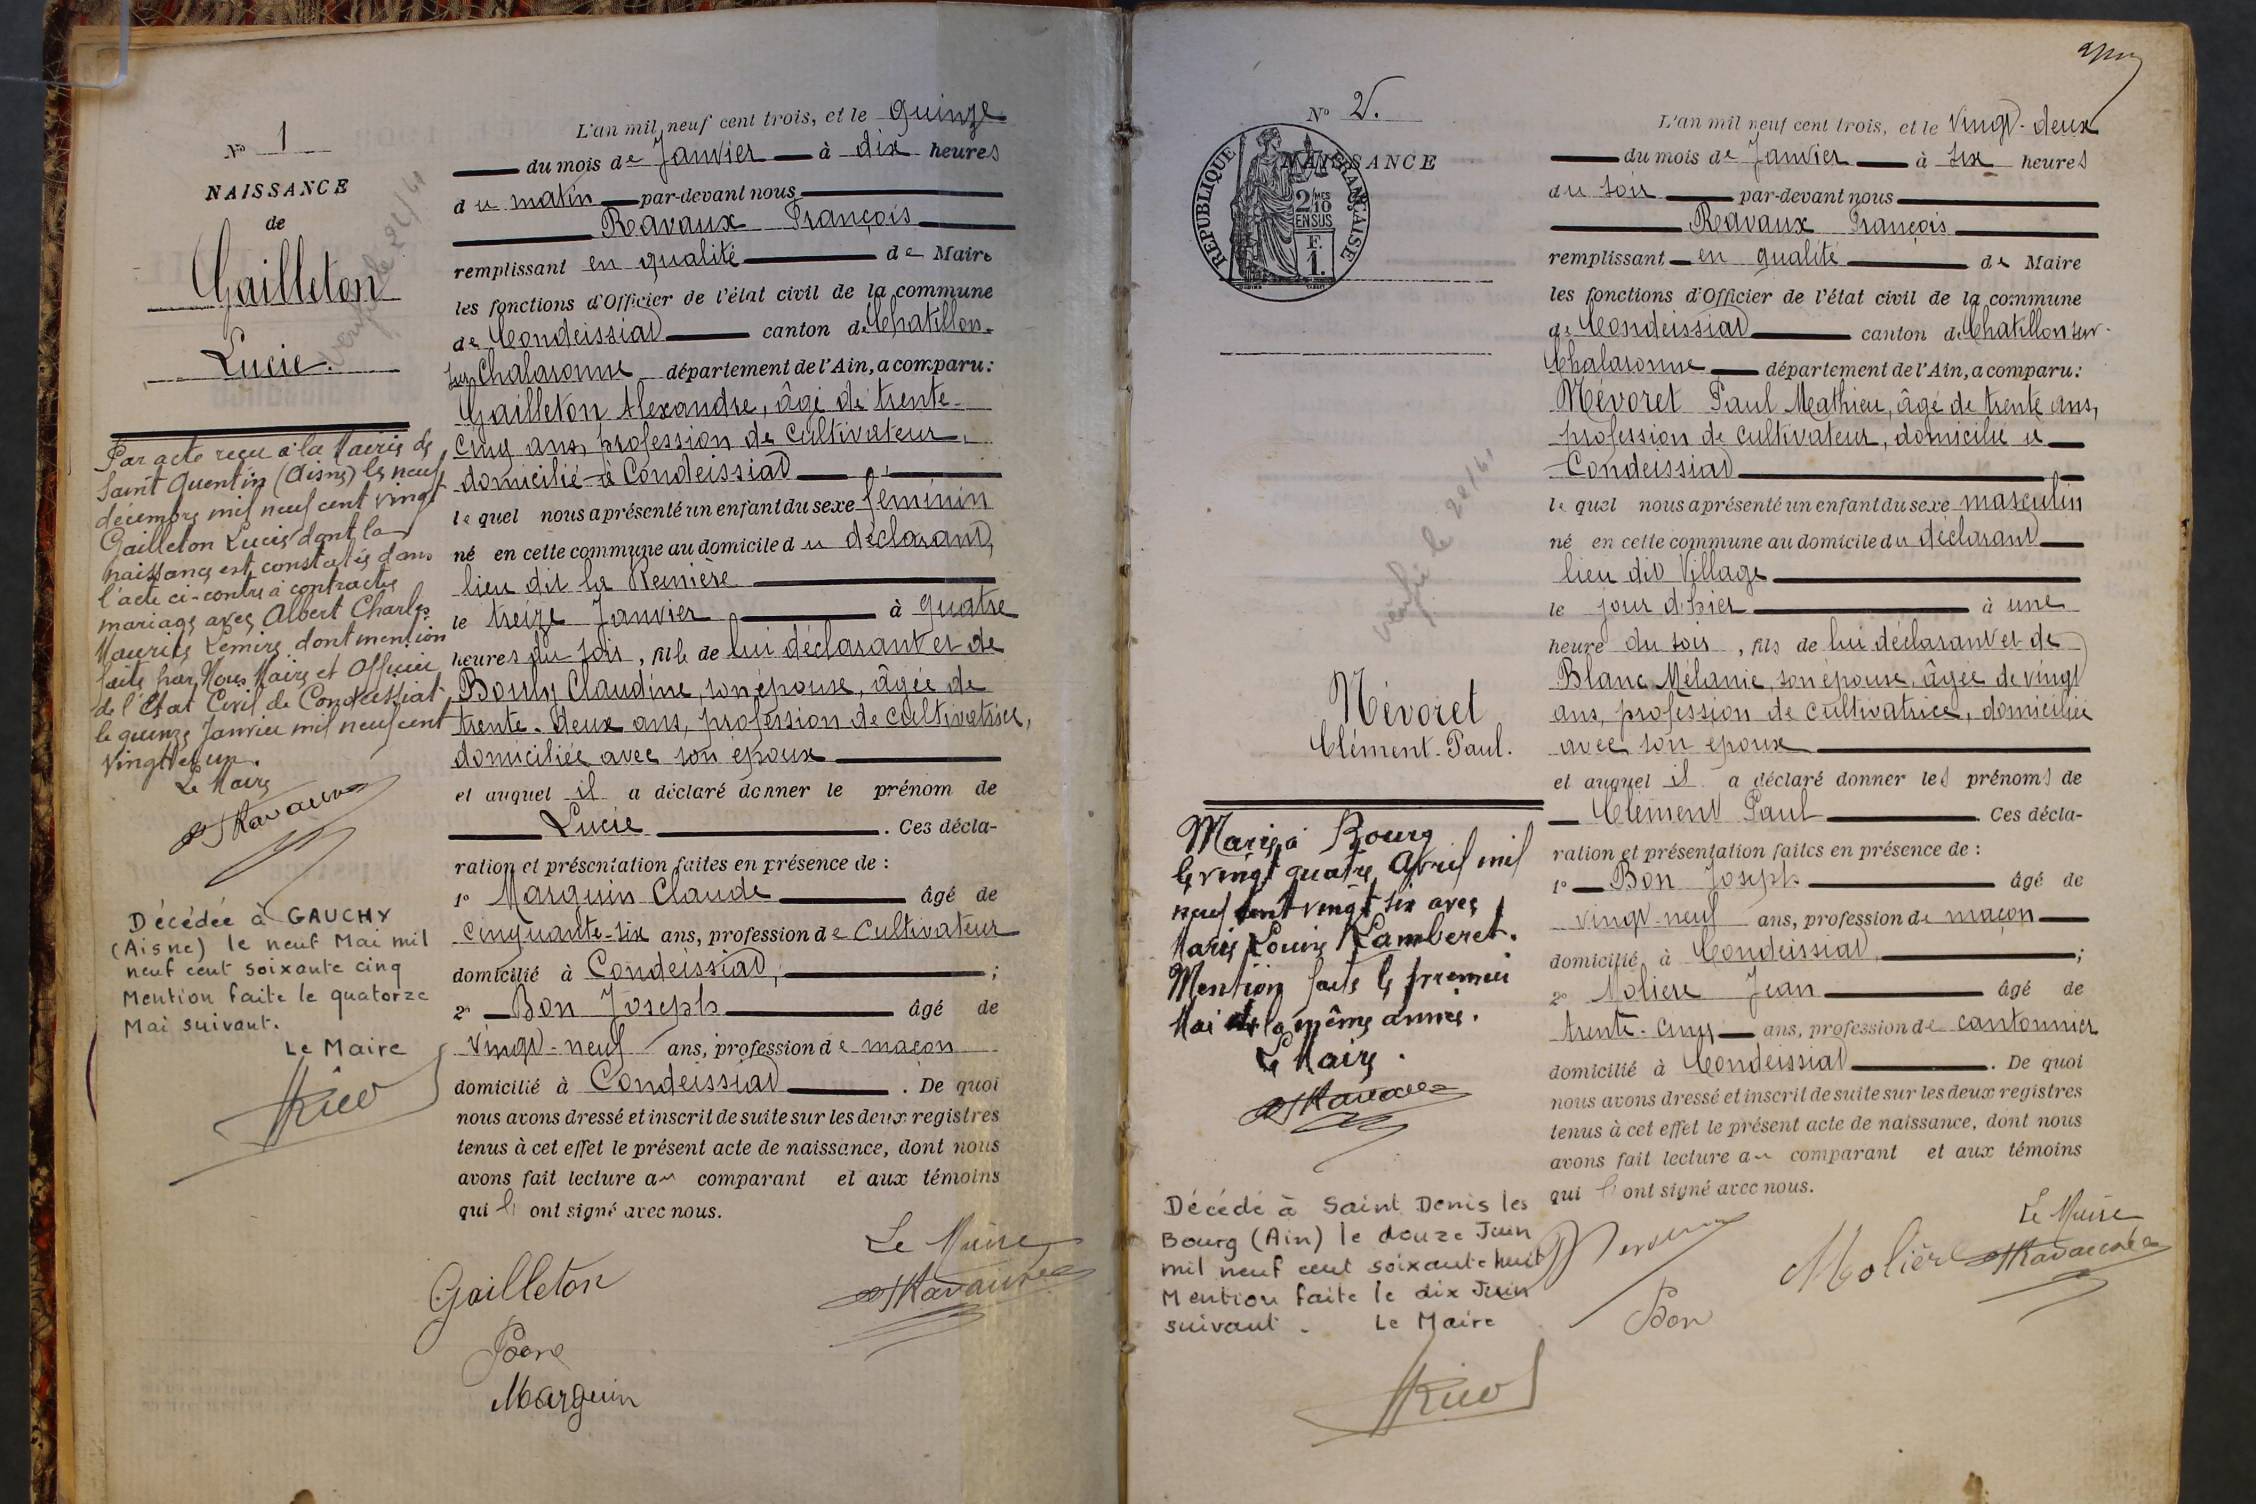 N° 1
NAISSANCE
de
Gailleton
Lucie.
vérifié le 22/41
Par acte reçu à la Mairie de
Saint Quentin (Aisne) le neuf
décembre mil neuf cent vingt
Gailleton Lucie dont la
naissance est constatée dans
l'acte ci-contre a contracté
mariage avec Albert Charles
Maurice Lemire dont mention
faite par Nous Maire et Officier
de l'Etat Civil de Condeissiat
le quinze Janvier mil neuf cent
vingt et un.
Le Maire
Ravaux
Décédée à GAUCHY
(Aisne) le neuf Mai mil
neuf cent soixante cinq
Mention faite le quatorze
Mai suivant.
Le Maire
L'an mil neuf cent trois, et le quinze
du mois de Janvier à dix heures
du matin par-devant nous
Ravaux François
remplissant en qualité de Maire
les fonctions d'Officier de l'état civil de la commune
de Condeissiat canton de Chatillon-
sur Chalaronne département de l'Ain, a comparu:
Gailleton Alexandre, âgé de trente-
cinq ans, profession de cultivateur,
domicilié à Condeissiat
lequel nous a présenté un enfant du sexe féminin
né en cette commune au domicile du déclarant,
lieu dit la
le treize Janvier à quatre
heures du soir, fille de lui déclarant et de
Bouly Claudine, son épouse, âgée de
trente-deux ans, profession de cultivatrice,
domiciliée avec son époux
et auquel il a déclaré donner le prénom de
Lucie. Ces décla-
ration et présentation faites en présence de :
1° Marguin Claude âgé de
cinquante-six ans, profession de cultivateur
domicilié à Condeissiat, ;
2° Bon Joseph âgé de
vingt-neuf ans, profession de maçon
domicilié à Condeissiat. De quoi
nous avons dressé et inscrit de suite sur les deux registres
tenus à cet effet le présent acte de naissance, dont nous
avons fait lecture au comparant et aux témoins
qui ont signé avec nous.
Le Maire
Gailleton
Ravaux
Bon
Marguin
N° 2.
NAISSANCE
RÉPUBLIQUE FRANÇAISE
2/10
EN SUS
F.
1.
vérifié le 22/41
Névoret
Clément-Paul.
Marié à Bourg
le vingt quatre Avril mil
neuf cent vingt six avec
Marie Louise Lamberet.
Mention faite le premier
Mai de la même année.
Le Maire.
Ravaux
Décédé à Saint Denis les
Bourg (Ain) le douze Juin
mil neuf cent soixante huit
Mention faite le dix Juin
suivant. Le Maire
L'an mil neuf cent trois, et le vingt-deux
du mois de Janvier à six heures
du soir par-devant nous
Ravaux François
remplissant en qualité de Maire
les fonctions d'Officier de l'état civil de la commune
de Condeissiat canton de Chatillon sur-
Chalaronne département de l'Ain, a comparu:
Névoret Paul Mathieu, âgé de trente ans,
profession de cultivateur, domicilié à
Condeissiat
lequel nous a présenté un enfant du sexe masculin
né en cette commune au domicile du déclarant
lieu dit Village
le jour d'hier à une
heure du soir, fils de lui déclarant et de
Blanc Mélanie, son épouse, âgée de vingt
ans, profession de cultivatrice, domiciliée
avec son époux
et auquel il a déclaré donner les prénoms de
Clément Paul. Ces décla-
ration et présentation faites en présence de :
1° Bon Joseph âgé de
vingt-neuf ans, profession de maçon
domicilié à Condeissiat ;
2° Molière Jean âgé de
trente-cinq ans, profession de cantonnier
domicilié à Condeissiat. De quoi
nous avons dressé et inscrit de suite sur les deux registres
tenus à cet effet le présent acte de naissance, dont nous
avons fait lecture au comparant et aux témoins
qui ont signé avec nous.
Le Maire
Molière Ravaux
Bon